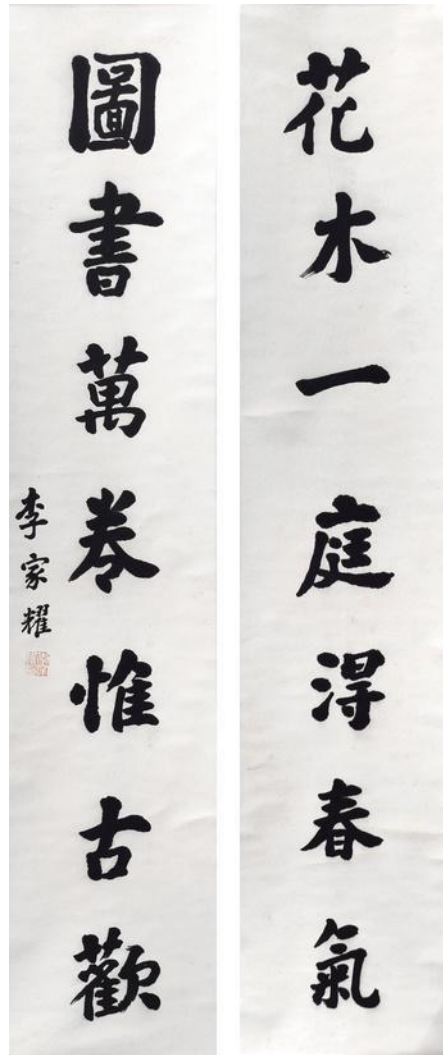 花木一庭得春氣
圖書萬卷惟古歡
李家耀